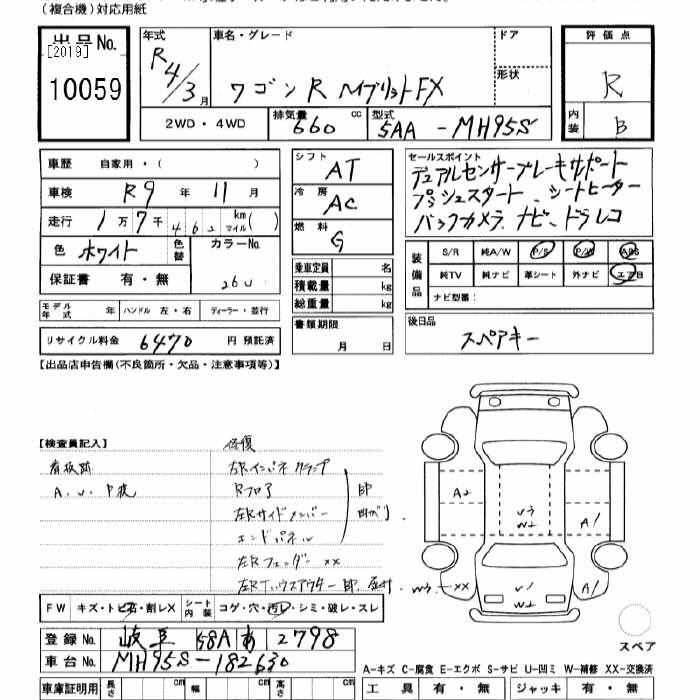 (複合機)対応用紙
出品No.
[2019]
10059
年式
R4/3月
車名・グレード
ワゴンR ハイブリットFX
ドア
形状
評価点
R
内装
B
2WD・4WD
排気量
660 cc
型式
5AA-MH95S
車歴 自家用・( )
車検 R9年 11月
走行 1万7千 km マイル ( )
色 ホワイト
色替
カラーNo.
26U
保証書 有・無
モデル年式 年 ハンドル 左・右 ディーラー・並行
リサイクル料金 6470 円 預託済
シフト AT
冷房 AC
燃料 G
乗車定員 名
積載量 kg
総重量 kg
書類期限
月 日
セールスポイント
デュアルセンサーブレーキサポート
プッシュスタート、シートヒーター
バックカメラ、ナビ、ドラレコ
装備品
S/R 純A/W P/S P/W ABS
純TV 純ナビ 革シート 外ナビ エアB
ナビ型番:
後日品
スペアキー
【出品店申告欄(不良箇所・欠品・注意事項等)】
【検査員記入】
看板跡
A.U.P状
修復
左Rインパネクランプ
Rフロア
左Rサイドメンバー
エンドパネル
左Rフェンダー xx
A2
U3
W2
A1
W3
xx
U1
W2
A1
FW キズ・トビ石・割レX
シート内装 コゲ・穴・汚レ・シミ・破レ・スレ
スペア
登録No. 岐阜 58A あ 2798
車台No. MH95S-182630
A-キズ C-腐食 E-エクボ S-サビ U-凹ミ W-補修 XX-交換済
車庫証明用 長さ cm 幅 cm 高さ cm
工具 有・無 ジャッキ 有・無